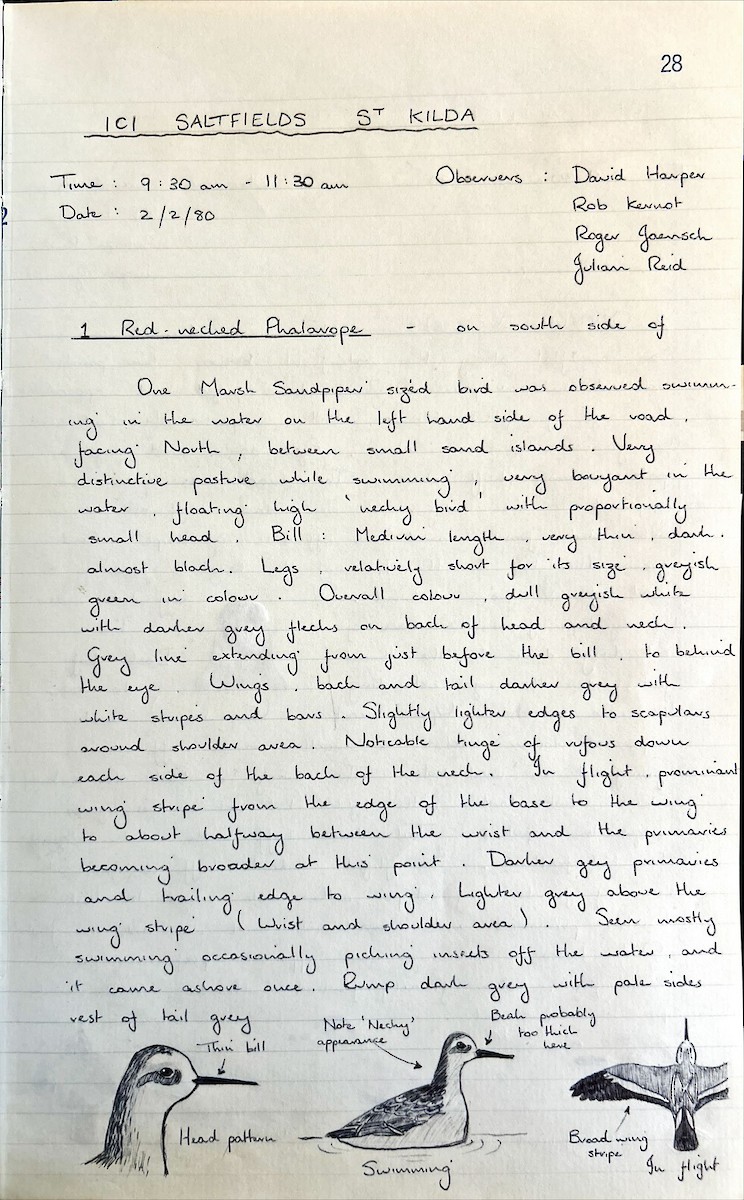 28
ICI SALTFIELDS ST KILDA
Time : 9:30 am - 11:30 am
Date : 2/2/80
Observers : David Harper
Rob Kernot
Roger Jaensch
Julian Reid
1 Red-necked Phalarope - on south side of
One Marsh Sandpiper sized bird was observed swimm-
ing in the water on the left hand side of the road,
facing North, between small sand islands. Very
distinctive posture while swimming, very bouyant in the
water, floating high 'necky bird' with proportionally
small head. Bill : Medium length, very thin, dark.
almost black. Legs, relatively short for its size, greyish
green in colour. Overall colour, dull greyish white
with darker grey flecks on back of head and neck.
Grey line extending from just before the bill, to behind
the eye. Wings, back and tail darker grey with
white stripes and bars. Slightly lighter edges to scapulars
around shoulder area. Noticable tinge of rufous down
each side of the back of the neck. In flight, prominant
wing stripe from the edge of the base to the wing
to about halfway between the wrist and the primaries
becoming broader at this point. Darker gey primaries
and trailing edge to wing. Lighter grey above the
wing stripe (Wrist and shoulder area). Seen mostly
swimming occasionally picking insects off the water, and
it came ashore once. Rump dark grey with pale sides
rest of tail grey
Thin bill
Head pattern
Note 'Necky'
appearance
Beak probably
too thick
here
Swimming
Broad wing
stripe
In flight